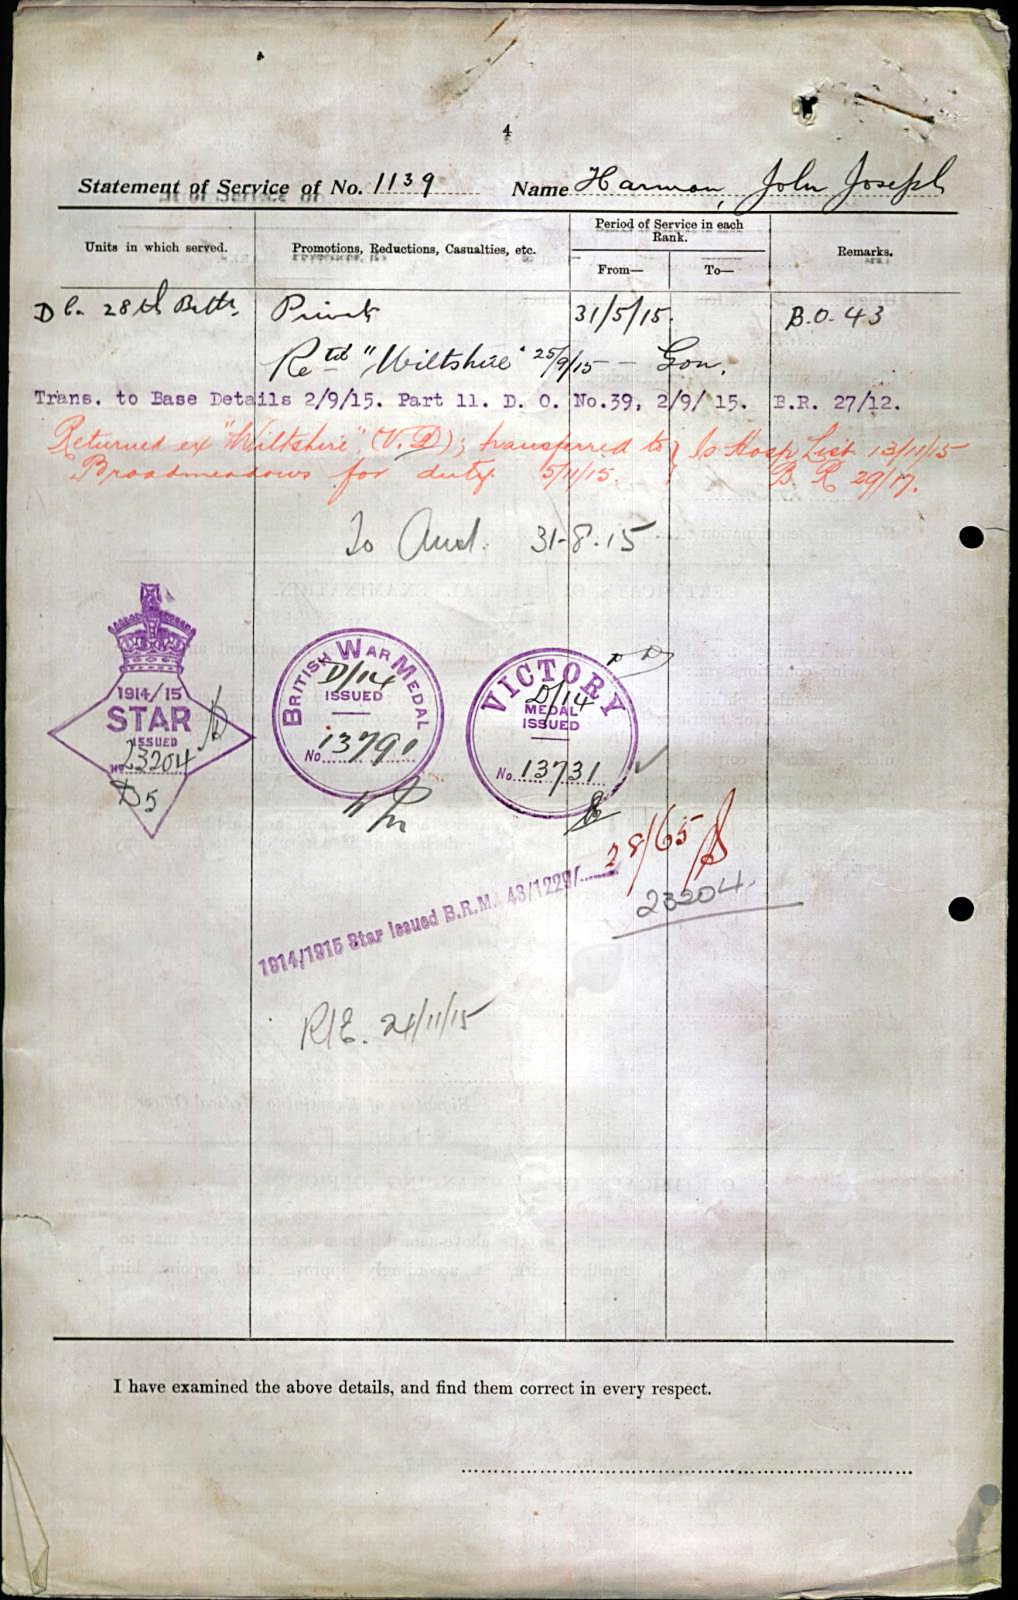 4
Statement of Service of No. 1139 Name Harmon, John Joseph
Units in which served. Promotions, Reductions, Casualties, etc. Period of Service in each Rank. Remarks.
From— To—
D Co. 28th Battn. Private 31/5/15. B.O. 43
Retd "Wiltshire" 25/9/15 — Gon.
Trans. to Base Details 2/9/15. Part 11. D. O. No.39, 2/9/ 15. B.R. 27/12.
Returned ex "Wiltshire" (V.D); transferred to } Is Hosp List 13/11/15
Broadmeadows for duty. 5/11/15. B. R 29/17.
To Aust. 31-8-15
1914/15
STAR
ISSUED
No 23204
D5
BRITISH WAR MEDAL
D/14
ISSUED
No. 13790
VICTORY
D/14
MEDAL
ISSUED
No. 13731
28/65
1914/1915 Star Issued B.R.M. 43/1229/
23204.
R/E. 24/11/15
I have examined the above details, and find them correct in every respect.